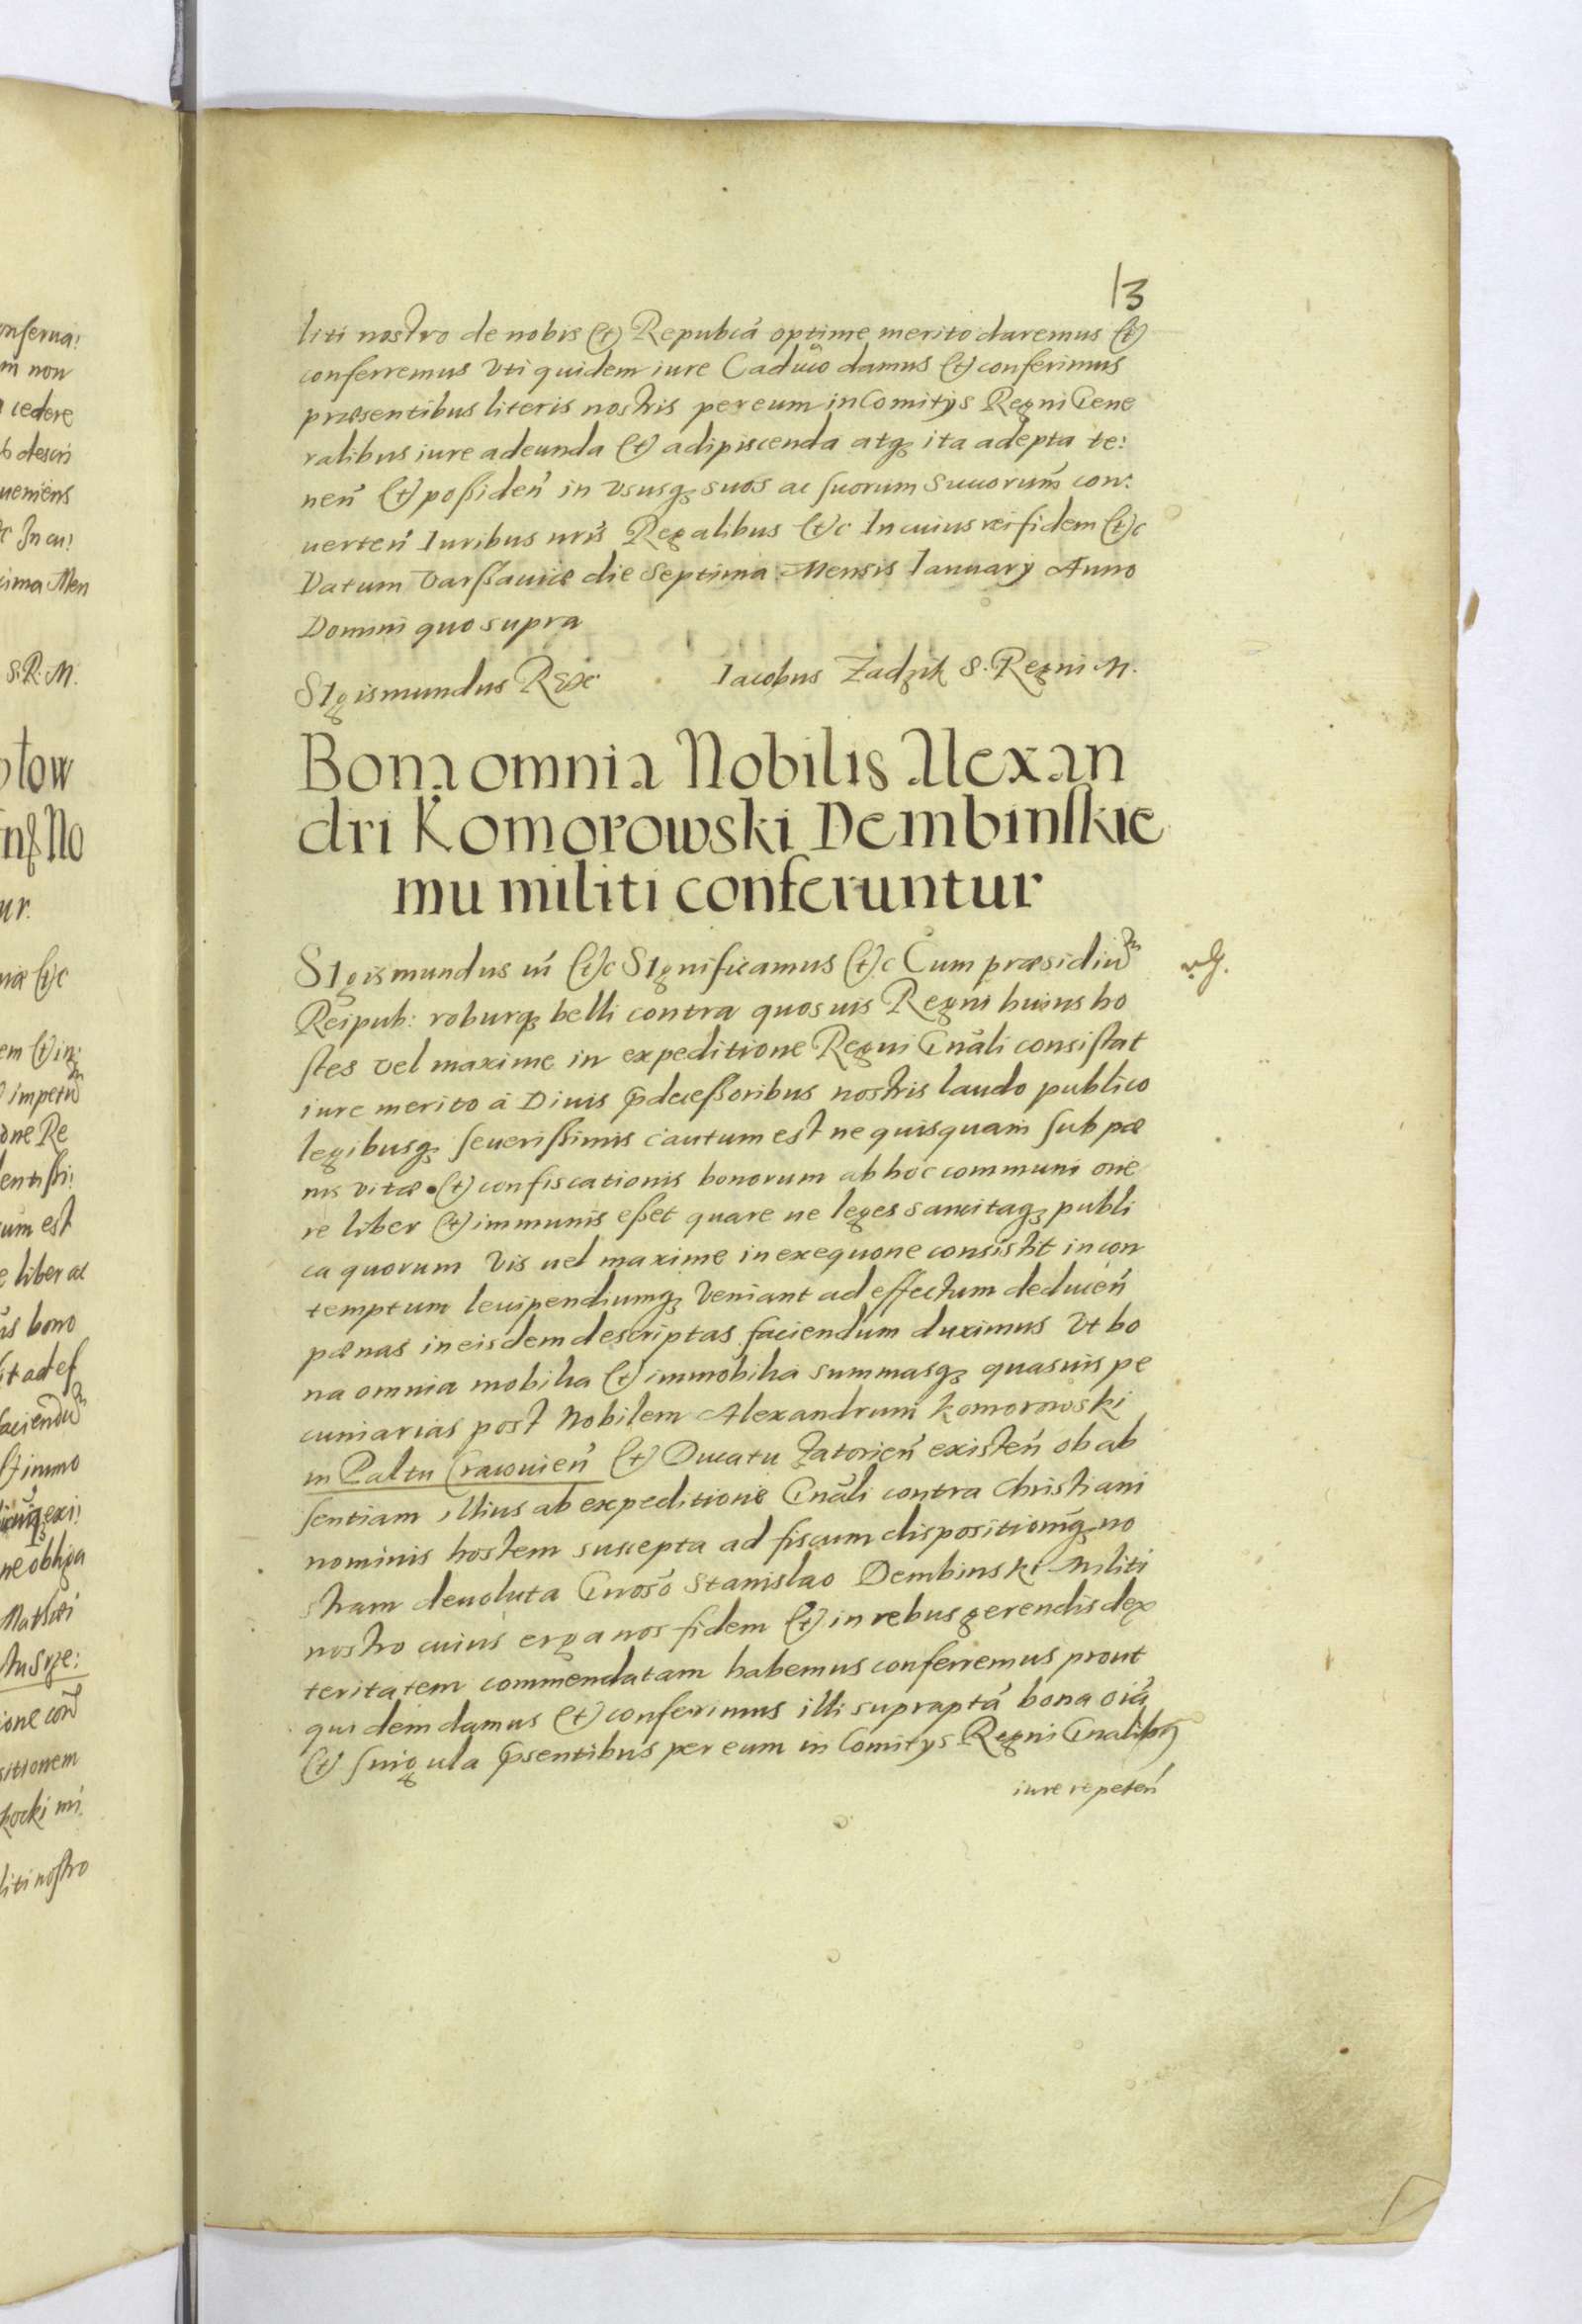 13
liti nostro de nobis (et) Repubcá optime merito daremus (et)
conferremus vti quidem iure Caduco damus (et) conferimus
præsentibus literis nostris per eum in Comitijs Regni Gene
ralibus iure adeunda (et) adipiscenda atq3 ita adepta te:
neñ (et) possideñ in vsusq3 suos ac suorum Succorum con:
uerteñ Iuribus nris Regalibus (et)c In cuius rei fidem (et)c
Datum Varssauiæ die Septima Mensis Ianuarij Anno
Domini quo supra
SIgismundus Rex Iacobus Zadzik S. Regni M.
Bona omnia Nobilis Alexan
dri Komorowski Dembinskie
mu militi conferuntur
SIgismundus iii (et)c SIgnificamus (et)c Cum præsidiũ
Reipub: roburq3 belli contra quosuis Regni huius ho
stes vel maxime in expeditione Regni Gnãli consistat
iure merito á Diuis p̃decessoribus nostris laudo publico
legibusq3 seuerissimis cautum est ne quisquam sub pæ
nis vitæ (et) confiscationis bonorum ab hoc communi one
re liber (et) immunis esset quare ne leges sancitaq3 publi
ca quorum vis uel maxime in exequone consistit in con
temptum leuipendiumq3 veniant ad effectum deduceñ
pænas in eisdem descriptas faciendum duximus vt bo
na omnia mobilia (et) immobilia summasq3 quasuis pe
cuniarias post Nobilem Alexandrum Komorowski
in Paltu Cracouieñ (et) Ducatu Zatorieñ existeñ ob ab
sentiam illius ab expeditione Gnãli contra Christiani
nominis hostem suscepta ad fiscum dispositionẽq3 no
stram deuoluta Gnoso Stanislao Dembinski Militi
nostro cuius erga nos fidem (et) in rebus gerendis dex
teritatem commendatam habemus conferremus prout
quidem damus (et) conferimus illi supraptã bona oiã
(et) singula p̃sentibus per eum in Comitijs Regni Gnalibq3
iure repeteñ
onserua:
m non
cedere
b descri
ueniens
c In cu:
tima Men
S. R. M.
otow
No
ur.
niæ (et)c
em (et) in:
impetũ
one Re
entissi:
um est
e liber ac
us bono
it ad ef
faciendũ
(et) immo
exi:
ne obliga
Mathæi
ione
sitionem
kocki mi
liti nostro